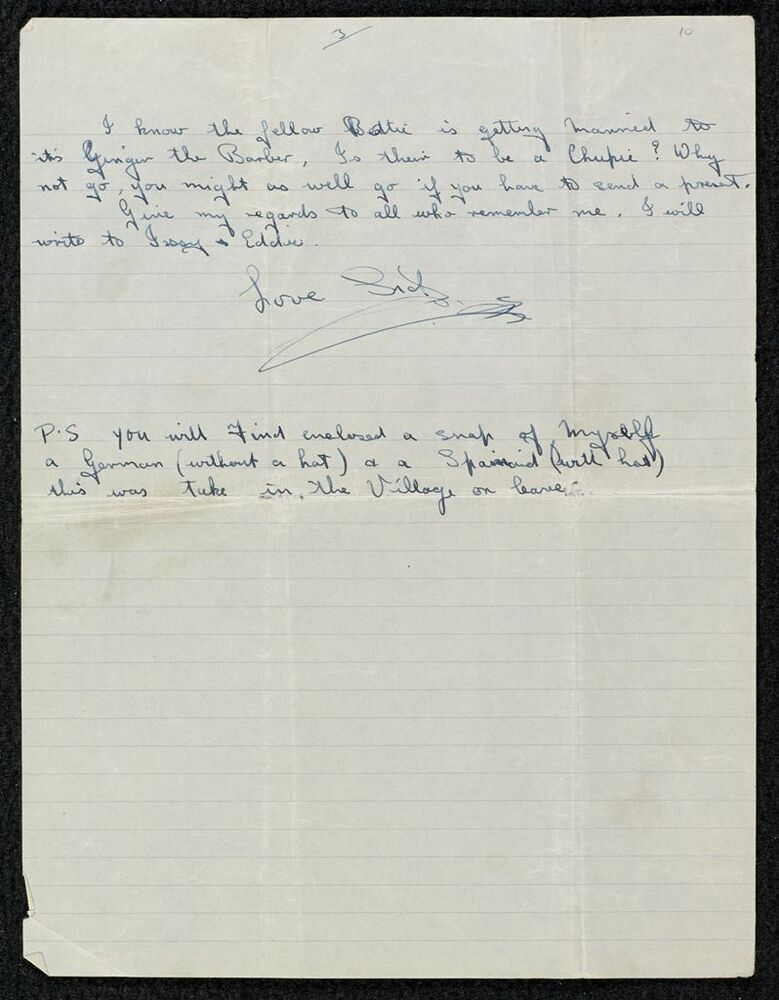 3
10
I know the fellow Bettie is getting married to
it's Ginger the Barber, Is their to be a Chupie? Why
not go, you might as well go if you have to send a present.
Give my regards to all who remember me. I will
write to Issy & Eddie.
Love
P.S you will Find enclosed a snap of Myself
a German (without a hat) & a Spainaid (with hat)
this was take in the Village on leave.